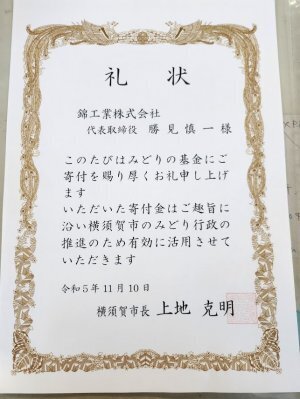 礼状
錦工業株式会社
代表取締役 勝見慎一様
このたびはみどりの基金にご
寄付を賜り厚くお礼申し上げ
ます
いただいた寄付金はご趣旨に
沿い横須賀市のみどり行政の
推進のため有効に活用させて
いただきます
令和5年11月10日
横須賀市長 上地克明